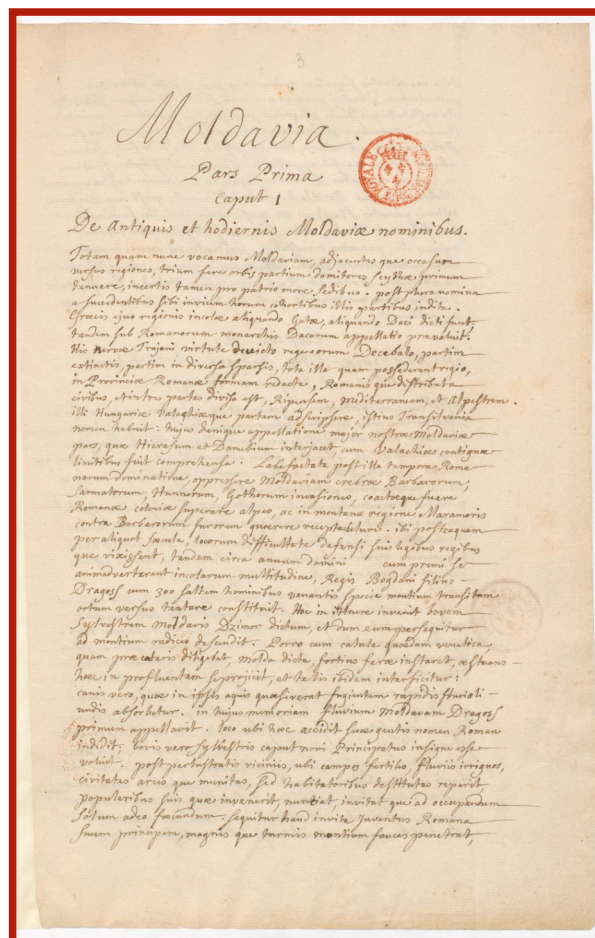 3
Moldavia.
Pars Prima
Caput 1
De Antiquis et hodiernis Moldaviæ nominibus.
Totam quam nunc vocamus Moldaviam, adjacentes que occasum
versus regiones, trium fere orbis partium domitores Scythæ primum
tenuere, incertis tamen pro patrio more sedibus. post plura nomina
a succedentibus sibi invicem horum cohortibus illis partibus indita.
ejus regionis incolæ aliquando Getæ, aliquando Daci dicti sunt,
tandem sub Romanorum monarchis Dacorum appellatio prævaluit.
His Nervæ Trajani virtute devicto rege eorum Decebalo, partim
extinctis, partim in diversa sparsis, tota illa quam possederant regio,
in Provinciæ Romanæ formam redacta, Romanis que distributa
civibus, et in tres partes divisa est, Ripensem, Mediterraneam, et Alpestrem.
illi Hungariæ Valachiæque partem adscripsere, istius Transilvania
nomen habuit: hujus denique appellatione major nostræ Moldaviæ
pars, quæ Hierasum et Danubium interjacet, cum Valachiæ contiguæ
limitibus fuit comprehensa. Labefactata post illa tempora Roma-
norum dominatione, oppressere Moldaviam crebræ Barbarorum,
Sarmatorum, Hunnorum, Gothorum invasiones, coactæque fuere
Romanæ coloniæ superare alpes, ac in montana regione Maramoris
contra Barbarorum furorem quærere receptaculum. ibi postquam
per aliquot sæcula, locorum difficultate defensi suis legibus regibus
que vixissent, tandem circa annum domini cum premi se
animadverterent incolarum multitudine, Regis Bogdani filius
Dragoss cum 300 saltem hominibus venantis specie montium transitum
ortum versus tentare constituit. Hoc in itinere invenit bovem
Sylvestrem Moldavis Dzimbr dictum, et dum eum persequitur
ad montium radices descendit. Porro cum catula quædam venatica,
quam præ cæteris diligebat, Molda dicta, fortius feræ instaret, æstuans
hæc in profluentem se projicit, et telis ibidem interficitur:
canis vero, quæ in ipsis aquis quæsiverat fugientem rapidis fluvioli
undis absorbetur. in hujus memoriam fluvium Moldavam Dragoss
primum appellavit. loco ubi hoc accidit suæ gentis nomen Roman
indidit; bovis vero sylvestris caput novi Principatus insigne esse
voluit. post perlustratis vicinis, ubi campos fertiles, fluviis irriguos,
civitates arces que munitas, sed habitatoribus destitutas reperit,
popularibus suis quæ invenerit, nuntiat, invitat que ad occupandum
solum adeo fæcundum. sequitur haud invite juventus Romana
suum principem, magnis que turmis montium fauces penetrat,